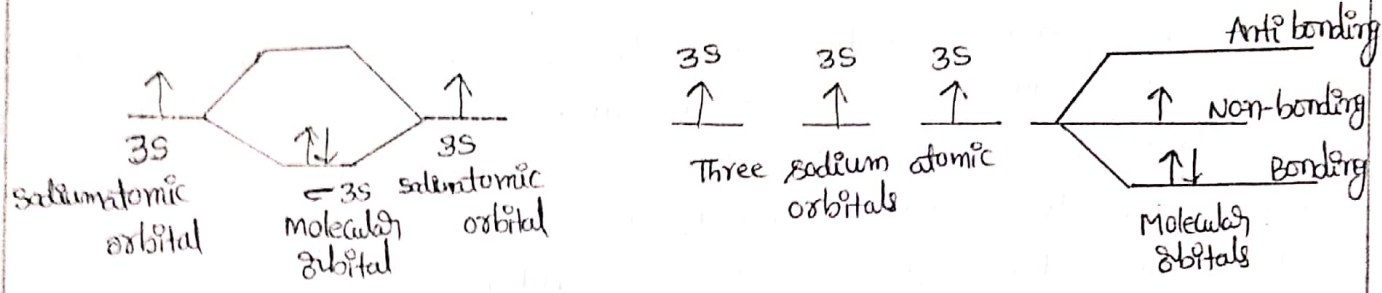 3S
Sodiumatomic
orbital
3S
Molecular
orbital
3S
atomic
orbital
3S 3S 3S
Three sodium atomic
orbitals
Anti bonding
Non-bonding
Bonding
Molecular
orbitals